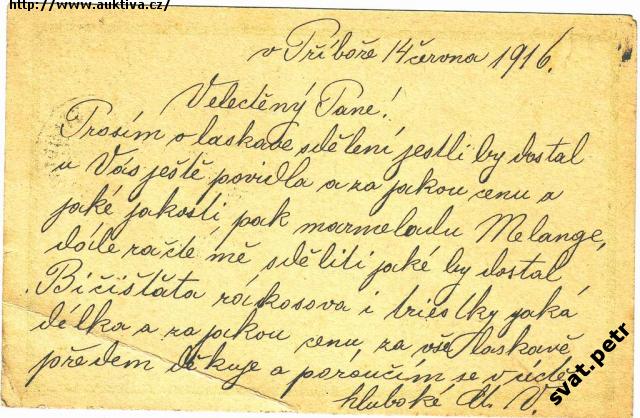 http://www.auktiva.cz/
v Příboře 14 června 1916.
Velectěný Pane!
Prosím o laskavé sdělení jestli by dostal
u Vás ještě povidla a za jakou cenu a
jaké jakosti pak marmeladu Melange,
dále račtě mě sděliti jaké by dostal
Bičišťáta rákosova i trieslky jaká
délka a za jakou cenu, za vše laskavě
předem děkuje a poroučím se v úctě
hluboké M. V.
svat.petr